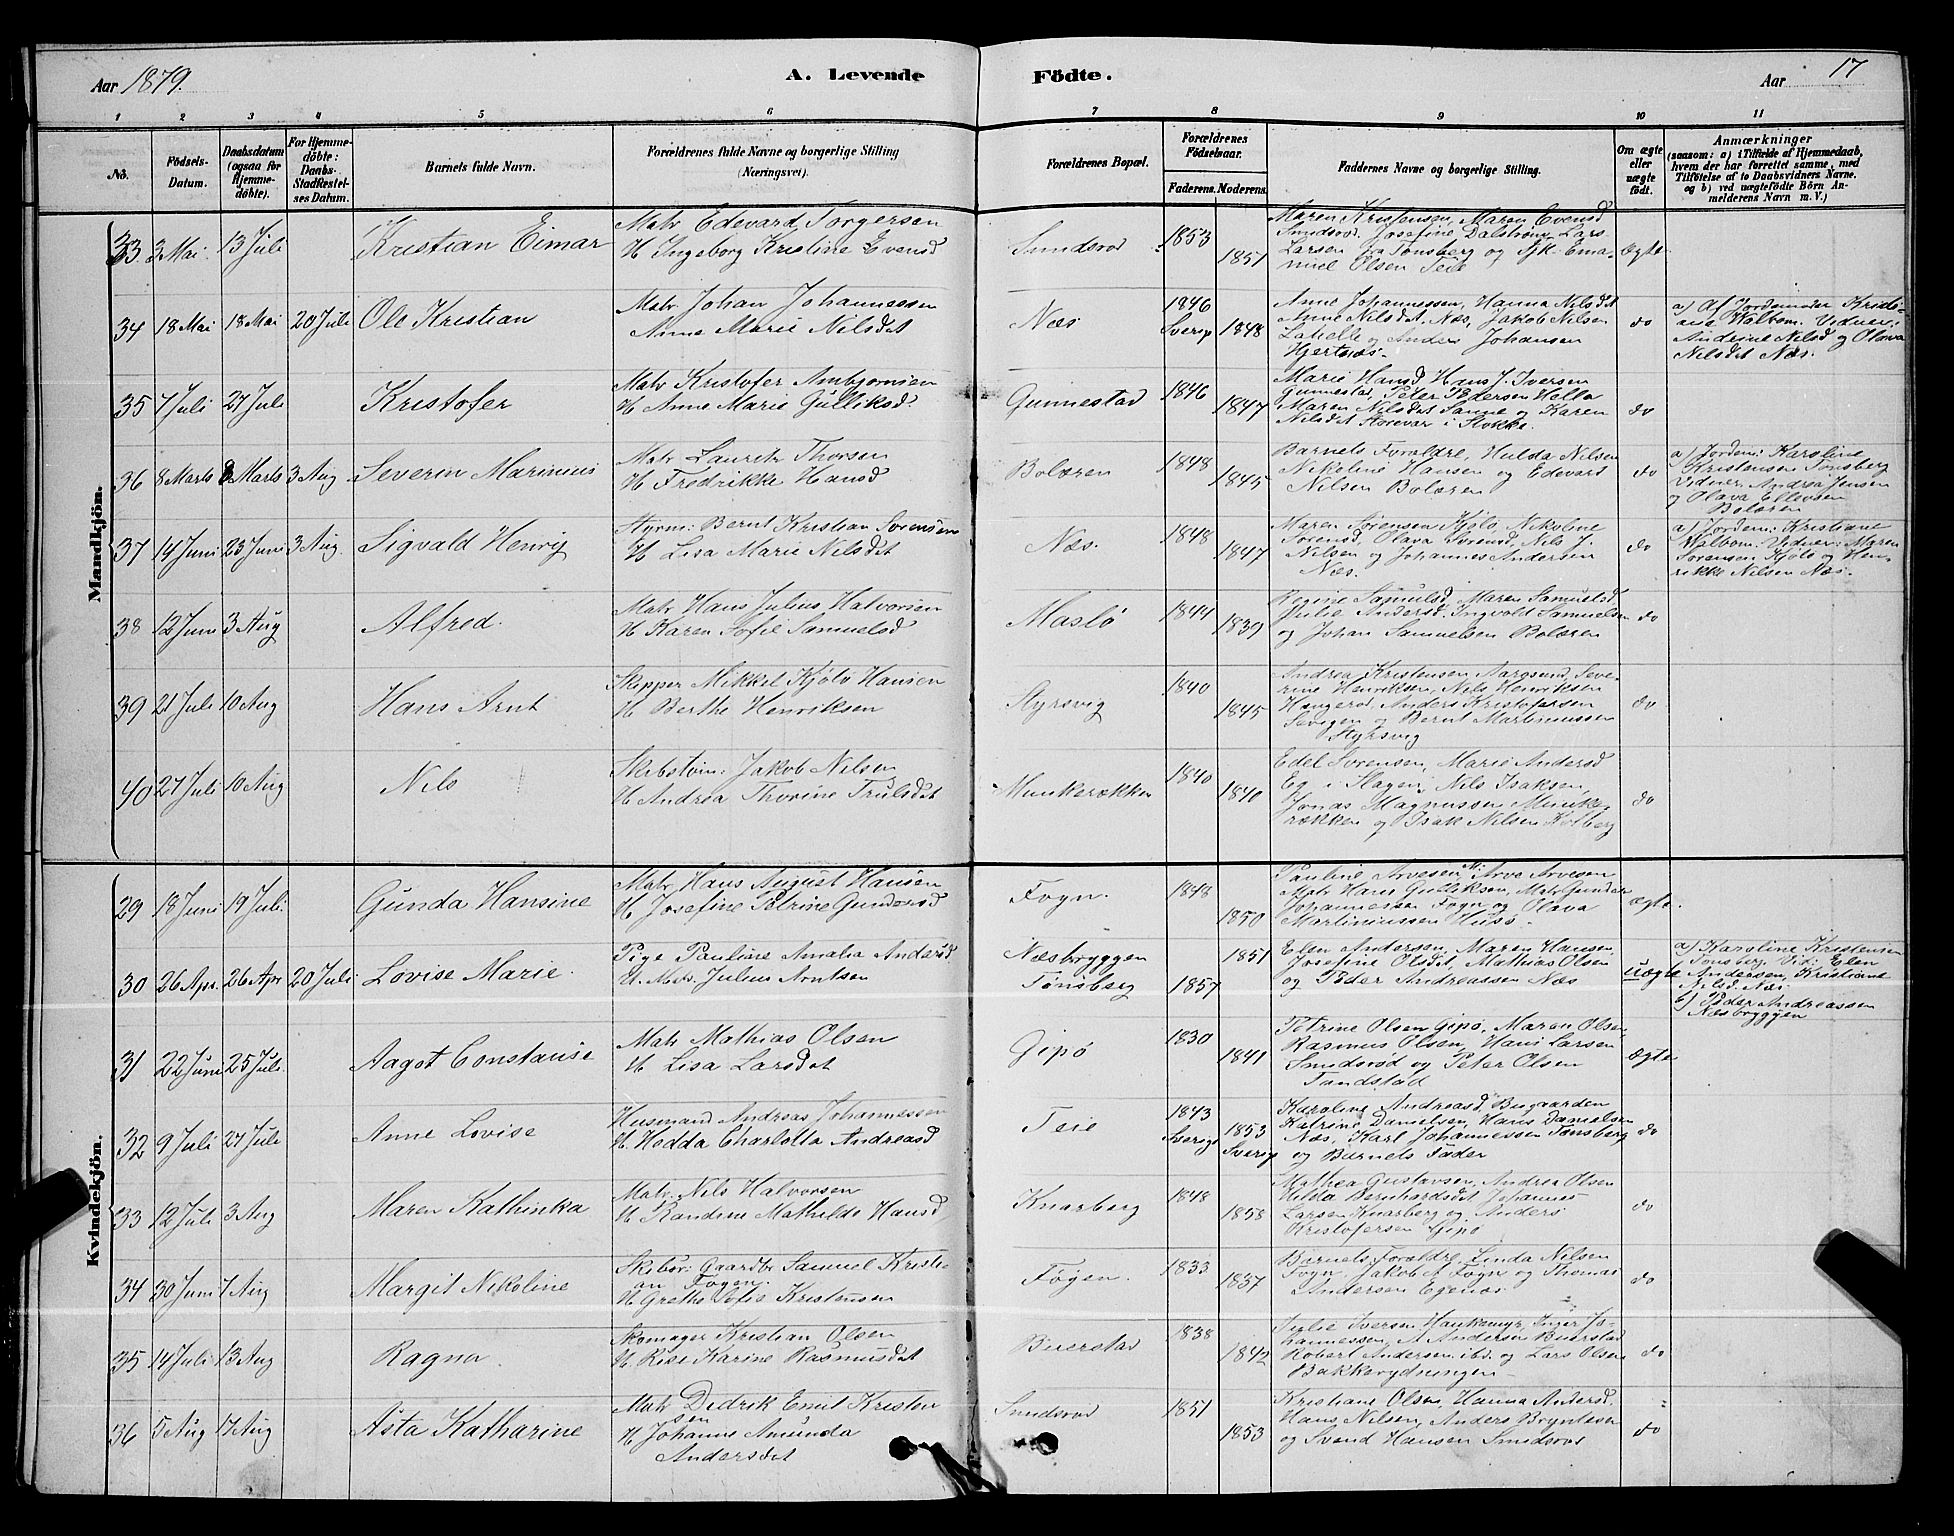 Aar 1879.
A. Levende
Födte.
Aar 17
1 2 3 4 5 6 7 8 9 10 11
No.
Födsels-Datum.
Daabsdatum (ogsaa for Hjemme-döbte).
For Hjemme-döbte: Daabs-Stadfæstel-ses Datum.
Barnets fulde Navn.
Forældrenes fulde Navne og borgerlige Stilling (Næringsvei).
Forældrenes Bopæl.
Forældrenes Födselsaar.
Faderens. Moderens.
Faddernes Navne og borgerlige Stilling.
Om ægte eller uægte födt.
Anmærkninger
(saasom: a) i Tilfælde af Hjemmedaab,
hvem der har forrettet samme, med
Tilföielse af to Daabsvidners Navne,
og b) ved uægtefödte Börn An-
melderens Navn m. V.)
Mandkjön.
33. 3 Mai 13 Juli Kristian Eimar
Matr Edevard Torgersen
H Ingeborg Kristine Evensd
Smidsrod 1853 1851
Maren Kristensen, Maren Evensd
Smidsrod, Josefine Dalstrøm, Lars
Larsen fra Tønsberg og Sjk. Ema-
nuel Olsen Teie
Ægte
34 18 Mai 18 Mai 20 Juli Ole Kristian
Matr Johan Johannessen
Anne Marie Nilsdet
Næs 1846 Sverig 1848
Anne Johannessen, Hanna Nilsdet
Anne Nilsdet. Næs, Jakob Nilsen
og Anders Johansen
Hjertnæs.
do
a) Af Jordemoder Kristi-
ane Walbom. Vidner:
Andrine Nilsd og Olava
Nilsdet Næs.
35 7 Juli 27 Juli Kristofer
Matr Kristofer Ambjørnsen
H Anne Marie Gulliksd.
Gunnestad 1846 1847
Marie Hansd, Hans J. Iversen
Gunnestad, Peter Pedersen Holla
Maren Nilsdet Sanne og Karen
Nilsdet Storevar i Stokke.
do
36 8 Marts 8 Marts 3 Aug Severin Marinius
Matr Lauritz Thorsen
H Fredrikke Hansd
Bolæren 1848 1845
Barnets Forældre, Hulda Nilsen
Nikoline Hansen og Edevart
Nilsen Bolæren
do
a) Jordem: Karoline
Kristensen Tønsberg
Vidner, Andrea Jensen
og Olava Ellevsen
Bolæren
37 14 Juni 23 Juni 3 Aug. Sigvald Henrig
Styrm: Bernt Kristian Sørensen
H Lisa Marie Nilsdet
Næs. 1848 1847
Maren Sørensen Kjøle, Nikoline
Sørensd, Olava Sørensd, Nils J.
Nilsen og Johannes Andersen
Næs.
do
a) Jordem: Kristiane
Walbom. Vidner: Maren
Sørensen, Kjøle og Hen-
rikke Nilsen Næs.
38 12 Juni 3 Aug Alfred.
Matr Hans Julius Halvorsen
H Karen Sofie Samuelsd
Maslø 1844 1839
Regine Samulsd, Maren Samuelsd
Julie Andersd. Ingvald Samuelsen
og Johan Samuelsen Bolæren
do
39 21 Juli 10 Aug Hans Arnt
Skipper Mikkel Kjølo Hansen
H Berthe Henriksen
Styrsvig 1840 1845
Andrea Kristensen Aargsund, Seve-
rine Henriksen, Nils Henriksen
Haugerød, Anders Kristofersen
og Bernt Martinussen
Styrsvig
do
40 27 Juli 10 Aug Nils
Skibstøm: Jakob Nilsen
H Andrea Thorine Trulsdet
Munkerækken 1840 1840
Edel Sørensen, Marie Andersd
Eg i Slagen, Nils Isaksen,
Jonas Magnussen Munke-
rækken og Isak Nilsen Kolberg
do
Kvindekjön.
29 18 Juni 19 Juli Gunda Hansine
Matr Hans August Hansen
H Josefine Petrine Gundersd
Fogn. 1848 1850
Pauline Arvesen, M: Arve Arvesen
Matr Hans Gulliksen, Matr Gunder
Johannessen Fogn og Olava
Martinussen Husø.
Ægte.
30 26 Apr. 26 Apr 20 Juli Lovise Marie.
Pige Pauline Amalia Andersd.
U. Matr. Julius Arntsen
Næsbryggen
Tønsberg 1851 1857
Elen Andersen, Maren Hansen,
Josefine Olsdet, Mathias Olsen
og Peder Andreassen Næs
uægte
a) Karoline Kristensen
Tønsberg. Vid: Elen
Andersen, Kristiane
Nilsd. Næs.
b) Peder Andreassen
Næsbryggen
31 22 Juni 25 Juli. Aagot Constanse
Matr Mathias Olsen
H Lisa Larsdet
Gipø 1830 1841
Petrine Olsen Gipø, Maren Olsen
Rasmus Olsen, Hans Larsen
Smidsrød og Peter Olsen
Tandstad
Ægte
32 9 Juli 27 Juli Anne Lovise
Husmand Andreas Johannessen
H. Hedda Charlotta Andreasd
Teie 1843 Sverige 1853 Sverig
Karoline Andreasd, Bugaarden
Katrine Danielsen, Hans Danielsen
Næs, Karl Johannessen Tønsberg
og Barnets Fader
do
33 12 Juli 3 Aug Maren Kathinka
Matr. Nils Halvorsen
H Randine Mathilde Hansd
Knarberg 1848 1858
Mathea Gustavsen, Andrea Olsen
Hilda Bernhardsdet, Johannes
Larsen Knarberg og Anders
Kristofersen Gipø
do
34 30 Juni 7 Aug Margit Nikoline
Skibsr: Gaardbr Samuel Kristi-
an Fogen.
H Grethe Sofie Kristensen
Føgen. 1833 1837
Barnets Forældre, Linda Nilsen
Fogn, Jakob A Fogn og Thomas
Andersen Egenæs
do
35 14 Juli 13 Aug Ragna.
Skomager Kristian Olsen
H. Rise Karine Rasmusdet
Buerstad 1838 1842
Julie Iversen Haukemyr, Inger Jo-
hannessen, A Andersen Buerstad
Robert Andersen ibd. og Lars Olsen
Bakkerydningen
do
36 5 Aug 17 Aug Asta Katharine
Matr Didrik Emil Kristen
sen
H Johanne Amunda
Andersdet
Smidsrod 1851 1853
Kristiane Olsen, Hanna Andersd.
Hans Nilsen, Anders Bryntesen
og Svend Hansen Smidsrod
do